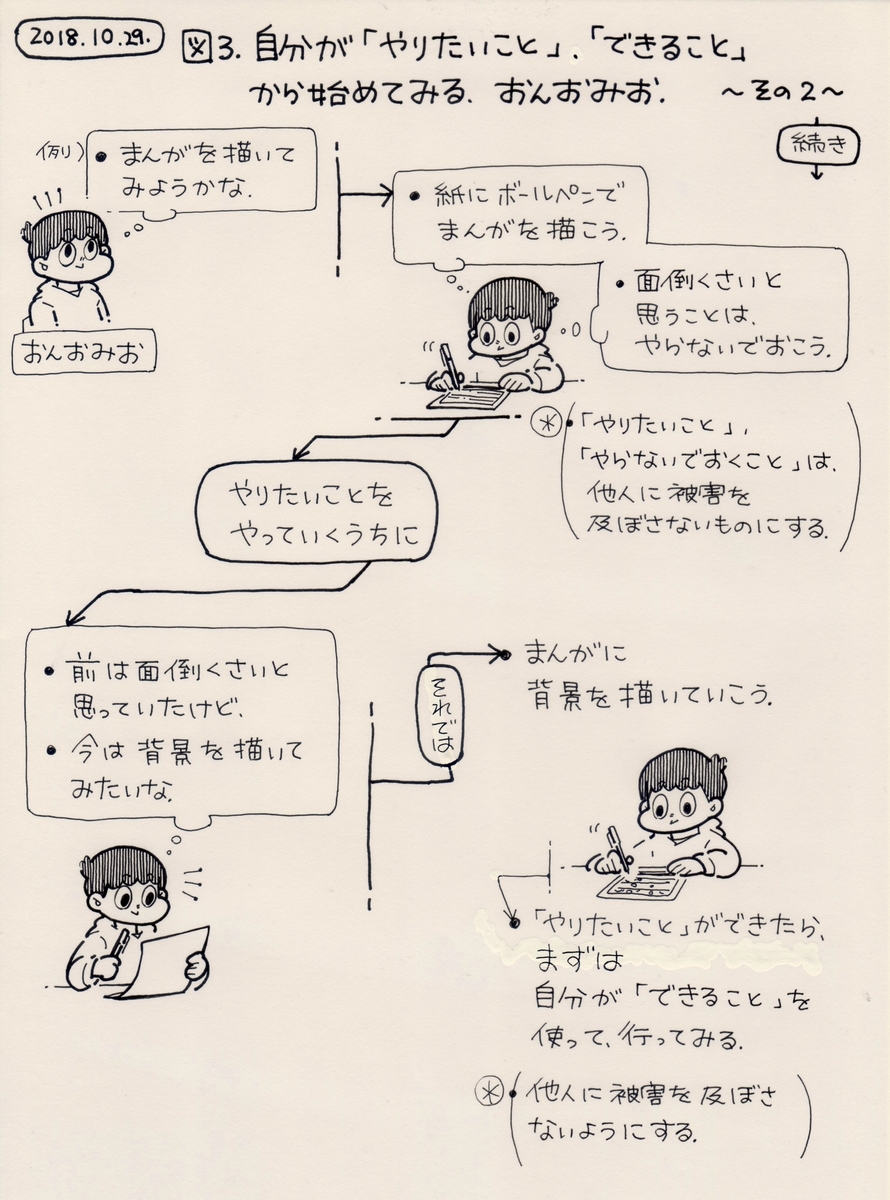 2018.10.29.
図3. 自分が「やりたいこと」、「できること」
から始めてみる. おんおみお. 〜その2〜
続き
例)
• まんがを描いて
みようかな.
おんおみお
• 紙にボールペンで
まんがを描こう.
• 面倒くさいと
思うことは、
やらないでおこう.
* •「やりたいこと」,
「やらないでおくこと」は、
他人に被害を
及ぼさないものにする.
やりたいことを
やっていくうちに
• 前は面倒くさいと
思っていたけど、
• 今は背景を描いて
みたいな.
それでは
• まんがに
背景を描いていこう.
•「やりたいこと」ができたら、
まずは
自分が「できること」を
使って、行ってみる.
* (• 他人に被害を及ぼさ
ないようにする.)